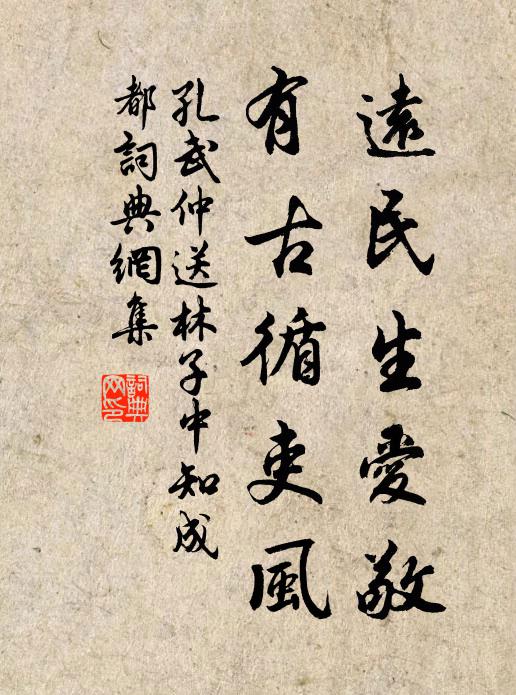 遠民生愛敬
有古循吏風
孔武仲送林子中知成
都詞典網集
詞典
网印